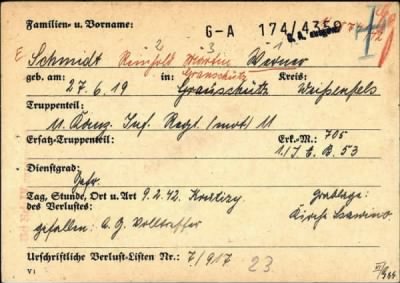 Familien- u. Vorname: G-A 174/4359
E Schmidt Reinhold Martin Werner
2 3 1
Granschütz
geb. am: 27.6.19 in: Granschütz Kreis: Weißenfels
Truppenteil:
11. Komp. Inf. Regt. (mot) 11
Ersatz-Truppenteil: Erk.-M.: 705
1./I.E.B. 53
Dienstgrad:
Gefr.
Tag, Stunde, Ort u. Art 9.2.42 Grablage:
des Verlustes: Kirche
gefallen: A.G. Volltreffer
Urschriftliche Verlust-Listen Nr.: 7/917 23
V1